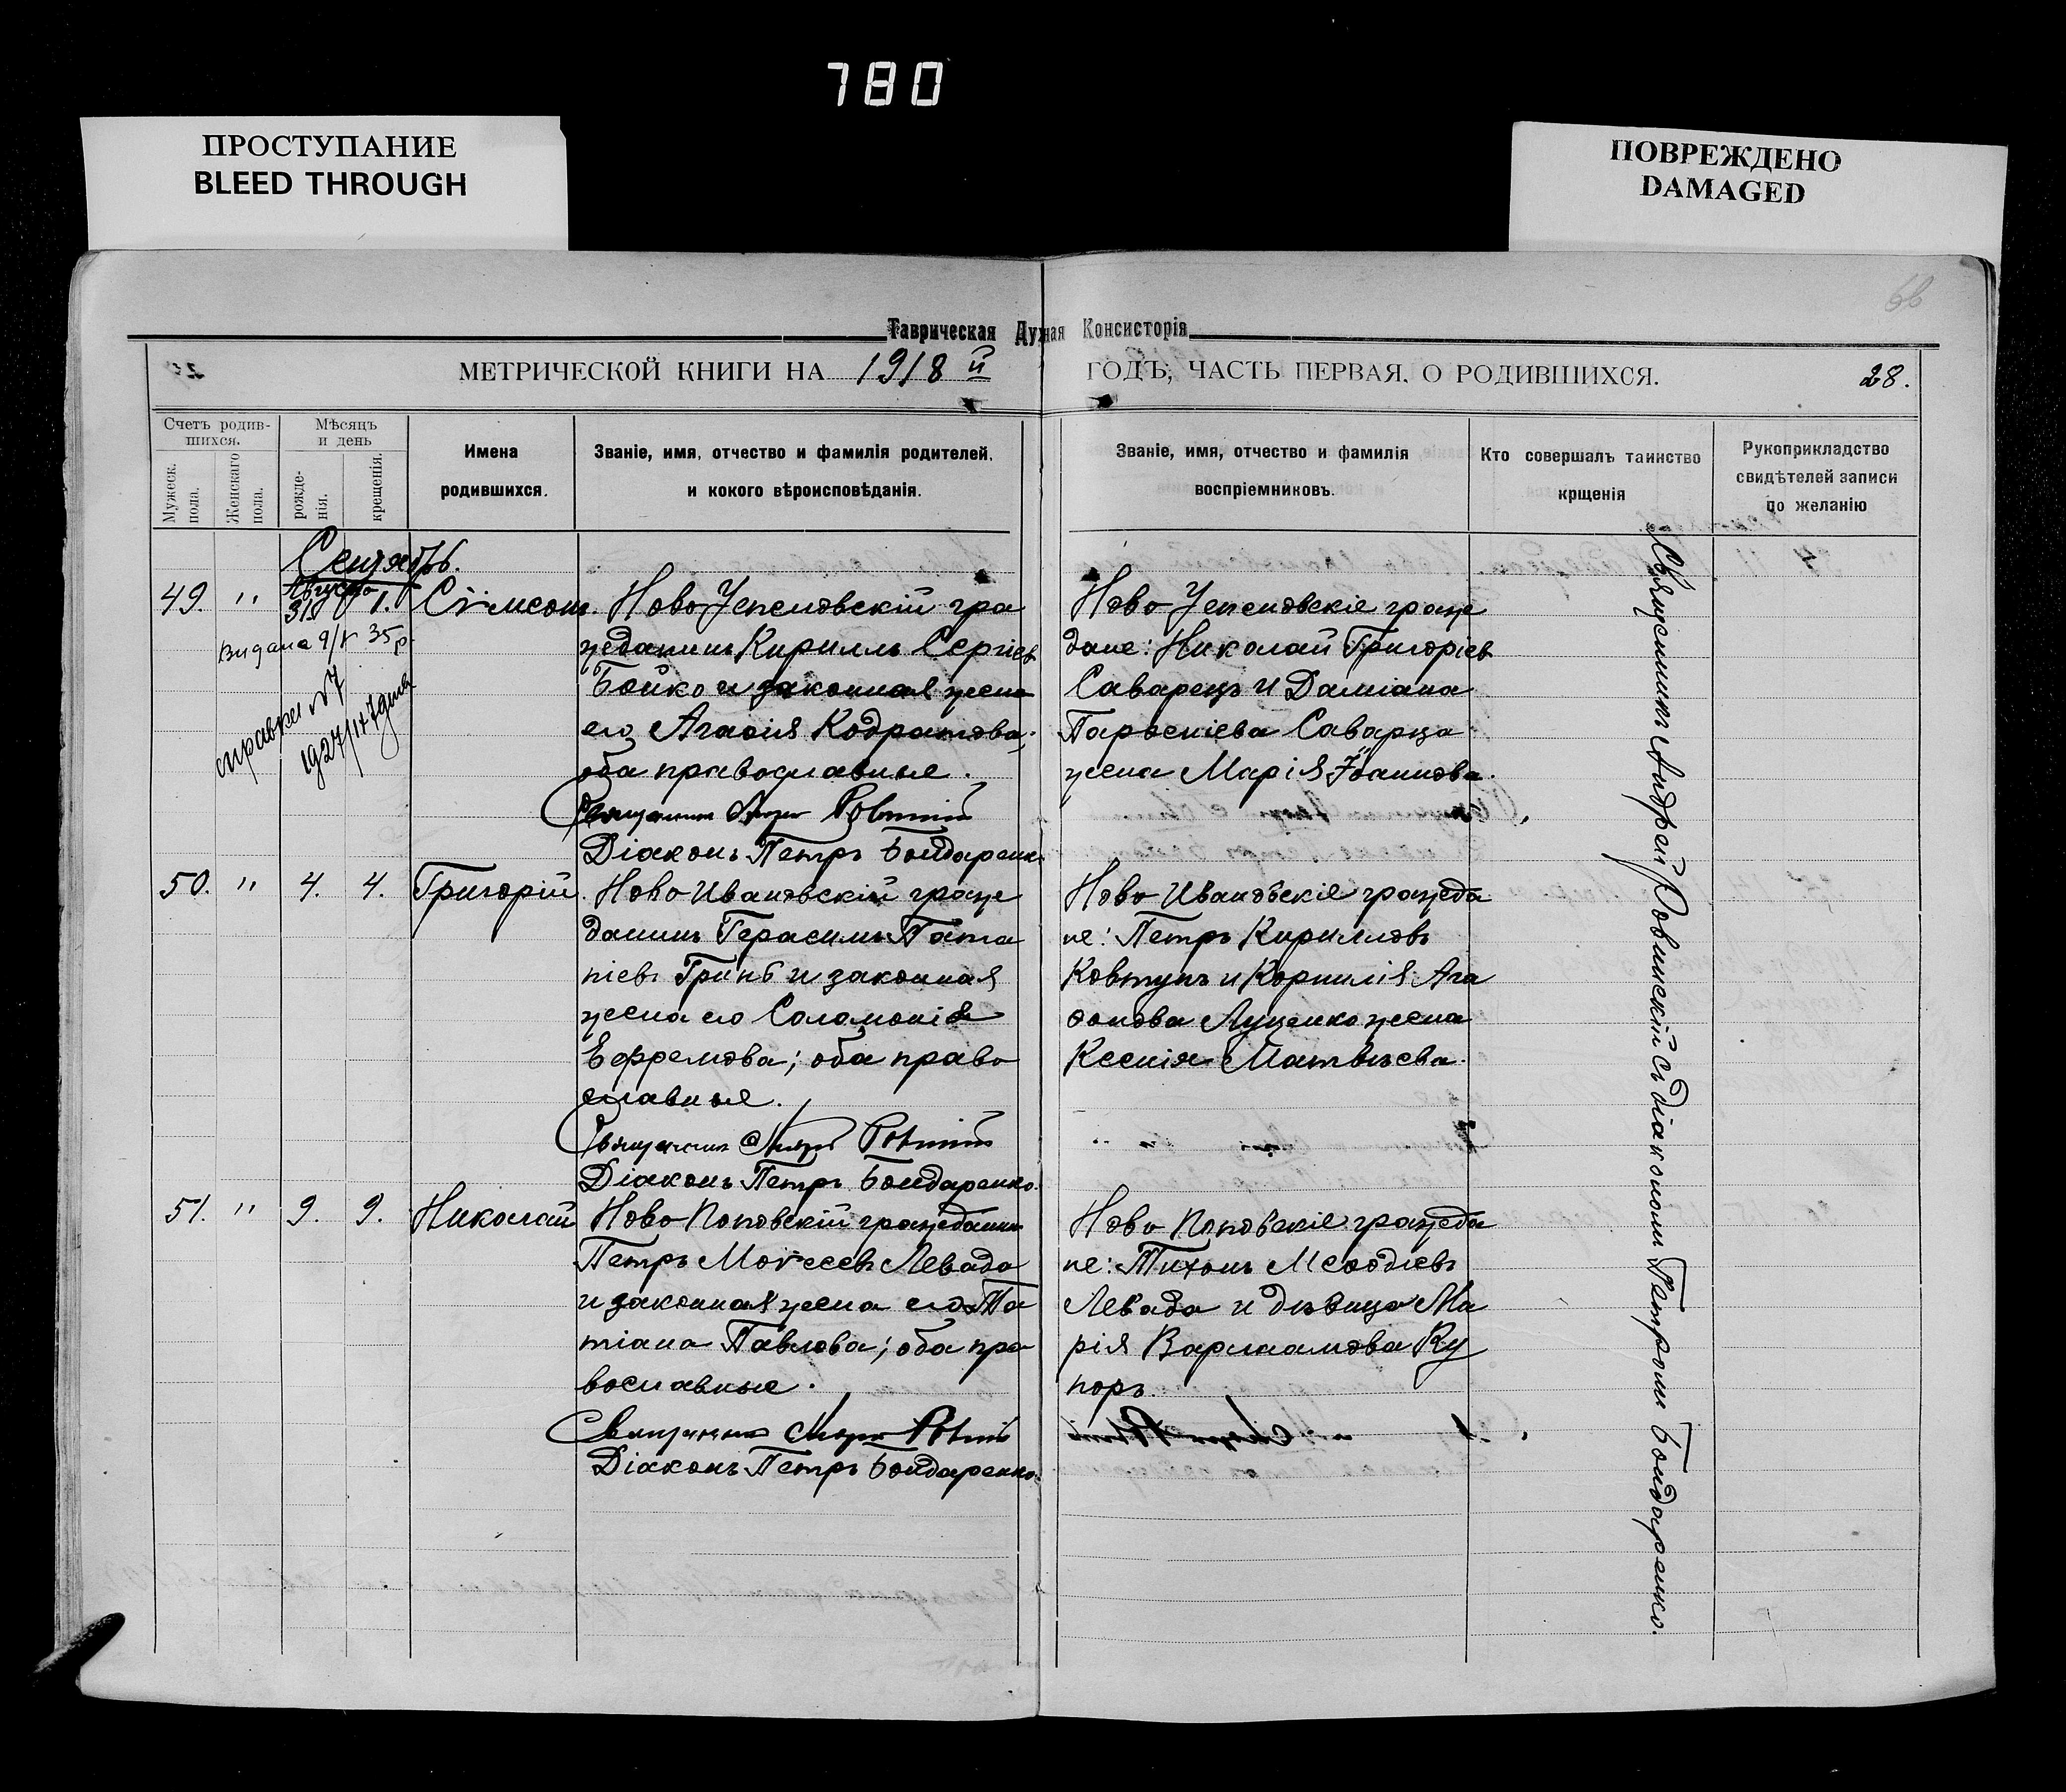 780
ПРОСТУПАНИЕ
BLEED THROUGH
ПОВРЕЖДЕНО
DAMAGED
66
Таврическая Духная Консисторія
МЕТРИЧЕСКОЙ КНИГИ НА 1918 й ГОДЪ, ЧАСТЬ ПЕРВАЯ, О РОДИВШИХСЯ. 28.
Счетъ родив-
шихся.
Мужеск.
пола.
Женскаго
пола.
Мѣсяцъ
и день
рожде-
нія.
крещенія.
Имена
родившихся.
Званіе, имя, отчество и фамилія родителей,
и кокого вѣроисповѣданія.
Званіе, имя, отчество и фамилія
воспріемниковъ.
Кто совершалъ таинство
крщенія
Рукоприкладство
свидѣтелей записи
по желанію
Сентябрь.
Августа
49. " 31. 1. Сѵмеонъ. Ново Успеновскій гра
жданинъ Кириллъ Сергіевъ
Бойко и законная жена
его Агафія Кодратова;
оба православные.
Священникъ Андрей Ровинскій
Діаконъ Петръ Бондаренко
Видана 9/V 35 р.
справка №7
1927/IX 7 дня
Ново Успеновскіе граж
дане: Николай Григоріевъ
Саварецъ и Даміана
Парѳеніева Саварца
жена Марія Іоаннова.
50. " 4. 4. Григорій. Ново Ивановскій граж
данинъ Герасимъ Пата
піевъ Гринь и законная
жена его Соломонія
Ефремова; оба право
славные.
Священникъ Андрей Ровинскій
Діаконъ Петръ Бондаренко.
Ново Ивановскіе гражда
не: Петръ Кирилловъ
Ковтунъ и Корнилія Ага
ѳонова Луценко жена
Ксенія Матвѣева.
51. " 9. 9. Николай Ново Поповскій гражданинъ
Петръ Моѵсеевъ Левада
и законная жена его Та
тіана Павлова; оба пра
вославные.
Священникъ Андрей Ровинскій
Діаконъ Петръ Бондаренко.
Ново Поповскіе гражда
не: Тихонъ Меѳодіевъ
Левада и дѣвица Ма
рія Варлаамова Ку
поръ.
Священникъ Андрей Ровинскій съ діакономъ Петромъ Бондаренко.